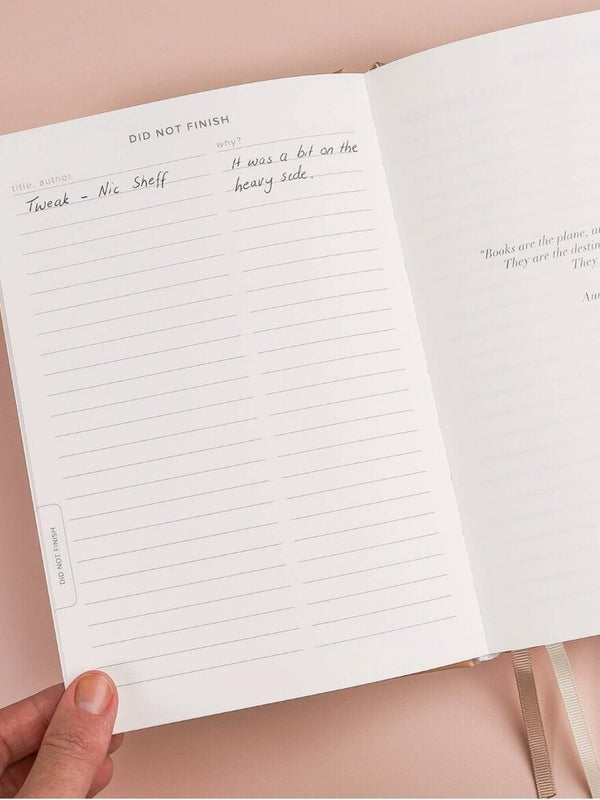 DID NOT FINISH
title, author
why?
Tweak - Nic Sheff
It was a bit on the
heavy side.
DID NOT FINISH
"Books are the plane,
They are the
They